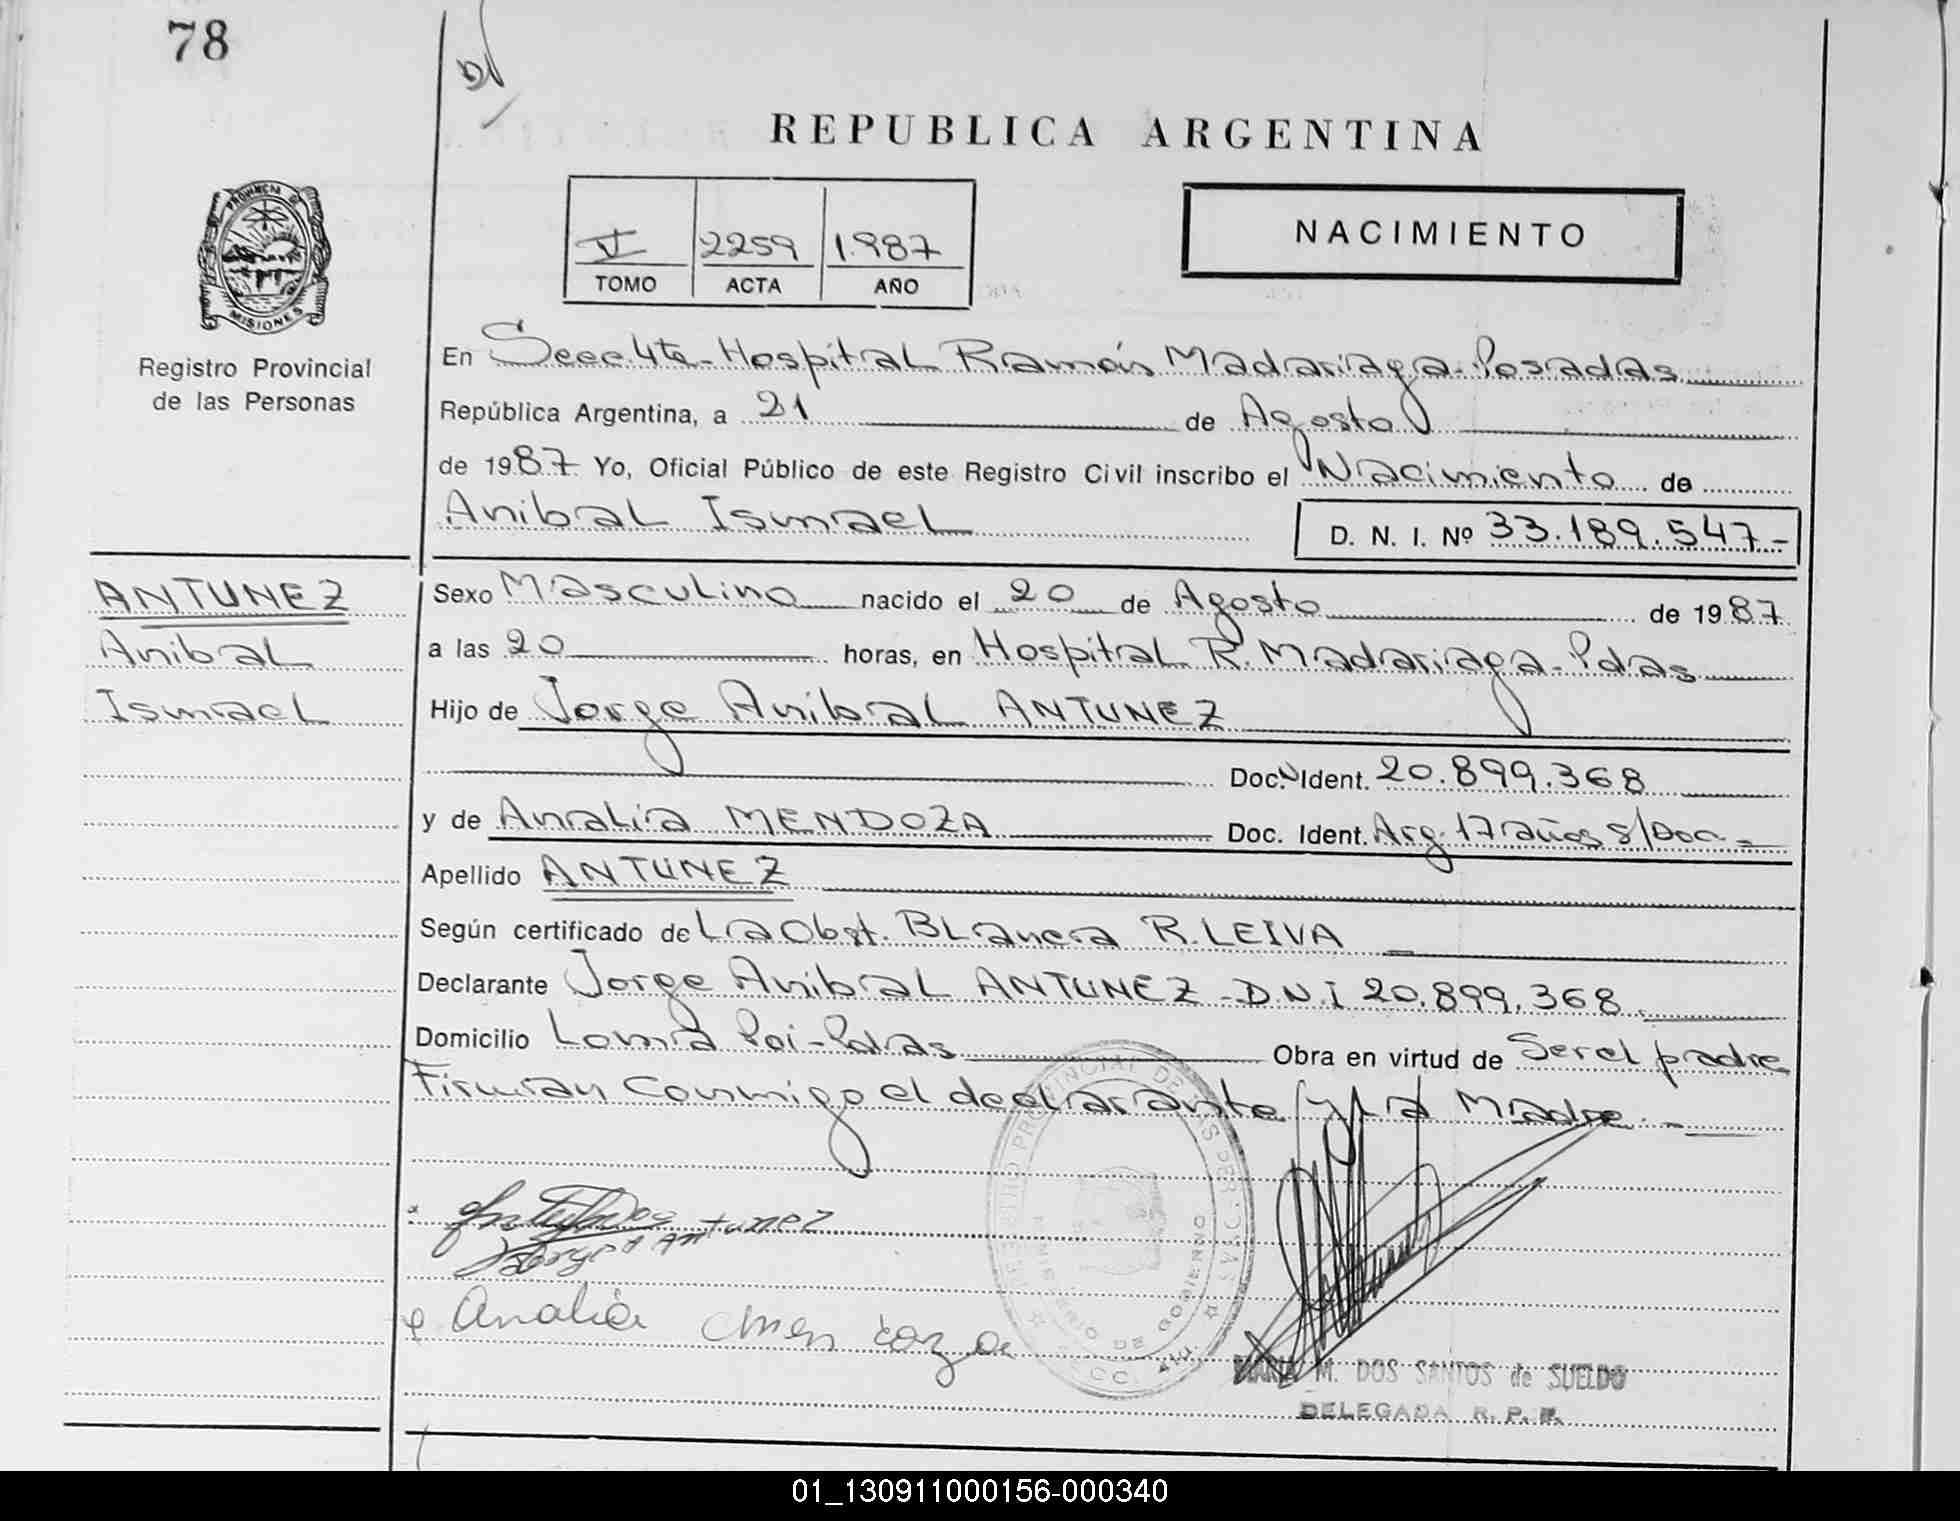 78
REPUBLICA ARGENTINA
PROVINCIA DE
MISIONES
Registro Provincial
de las Personas
V 2259 1.987
TOMO ACTA AÑO
NACIMIENTO
En Secc. 4ta - Hospital Ramón Madariaga - Posadas
República Argentina, a 21 de Agosto
de 1987 Yo, Oficial Público de este Registro Civil inscribo el Nacimiento de
Anibal Ismael
D. N. I. Nº 33.189.547-
ANTUNEZ
Anibal
Ismael
Sexo Masculino nacido el 20 de Agosto de 1987
a las 20 horas, en Hospital R. Madariaga - Pdas
Hijo de Jorge Anibal ANTUNEZ
Doc. Ident. 20.899.368
y de Analia MENDOZA Doc. Ident. Arg. 17 años S/Doc -
Apellido ANTUNEZ
Según certificado de La Obst. Blanca R. LEIVA
Declarante Jorge Anibal ANTUNEZ - D.N.I 20.899.368
Domicilio Loma Poi - Pdas Obra en virtud de Ser el padre
Firman Conmigo el declarante y La Madre. -
Jorge A Antunez
Analia Mendoza
REGISTRO PROVINCIAL DE LAS PERSONAS
MINISTERIO DE GOBIERNO
SECC. 4ta.
MARIA M. DOS SANTOS de SUELDO
DELEGADA R. P. P.
01_130911000156-000340